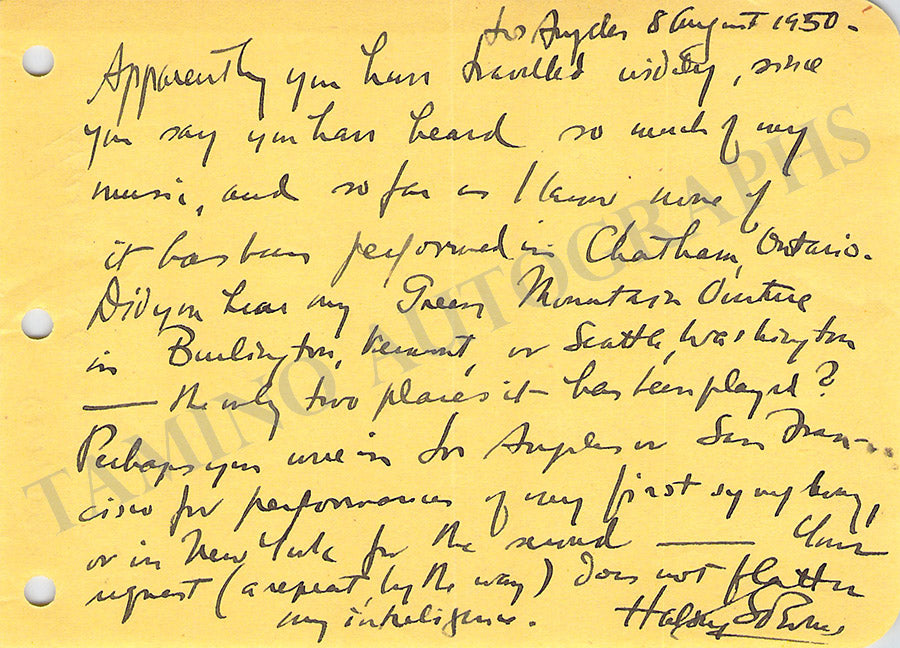 Los Angeles 8 August 1950 -
Apparently you have travelled widely, since
you say you have heard so much of my
music, and so far as I know none of
it has been performed in Chatham, Ontario.
Did you hear my Green Mountain Overture
in Burlington, Vermont, or Seattle, Washington
— the only two places it has been played?
Perhaps you were in Los Angeles or San Fran-
cisco for performances of my first symphony,
or in New York for the second — Your
request (a repeat, by the way) does not flatter
my intelligence. Halsey Stevens
TAMINO AUTOGRAPHS